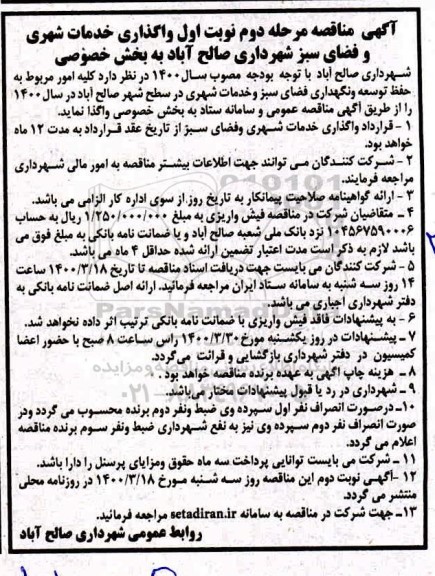 آگهی مناقصه مرحله دوم نوبت اول واگذاری خدمات شهری
و فضای سبز شهرداری صالح آباد به بخش خصوصی
شهرداری صالح آباد با توجه بودجه مصوب سال ۱۴۰۰ در نظر دارد کلیه امور مربوط به
حفظ توسعه ونگهداری فضای سبز وخدمات شهری در سطح شهر صالح آباد در سال ۱۴۰۰
را از طریق آگهی مناقصه عمومی و سامانه ستاد به بخش خصوصی واگذا نماید.
۱ - قرارداد واگذاری خدمات شهری وفضای سبز از تاریخ عقد قرارداد به مدت ۱۲ ماه
خواهد بود.
۲ - شرکت کنندگان می توانند جهت اطلاعات بیشتر مناقصه به امور مالی شهرداری
مراجعه فرمایند.
۳ - ارائه گواهینامه صلاحیت پیمانکار به تاریخ روز از سوی اداره کار الزامی می باشد.
۴ - متقاضیان شرکت در مناقصه فیش واریزی به مبلغ ۱/۲۵۰/۰۰۰/۰۰۰ ریال به حساب
۱۰۴۵۶۷۵۹۰۰۰۶ نزد بانک ملی شعبه صالح آباد و یا ضمانت نامه بانکی به مبلغ فوق می
باشد لازم به ذکر است مدت اعتبار تضمین ارائه شده حداقل ۴ ماه می باشد.
۵ - شرکت کنندگان می بایست جهت دریافت اسناد مناقصه تا تاریخ ۱۴۰۰/۳/۱۸ ساعت
۱۴ روز سه شنبه به سامانه ستاد ایران مراجعه فرمائید. ارائه اصل ضمانت نامه بانکی به
دفتر شهرداری اجباری می باشد.
۶ - به پیشنهادات فاقد فیش واریزی با ضمانت نامه بانکی ترتیب اثر داده نخواهد شد.
۷ - پیشنهادات در روز یکشنبه مورخ ۱۴۰۰/۳/۳۰ راس ساعت ۸ صبح با حضور اعضا
کمیسیون در دفتر شهرداری بازگشایی و قرائت می گردد.
۸ - هزینه چاپ اگهی به عهده برنده مناقصه خواهد بود .
۹ - شهرداری در رد یا قبول پیشنهادات مختار می باشد.
۱۰- درصورت انصراف نفر اول سپرده وی ضبط ونفر دوم برنده محسوب می گردد ودر
صورت انصراف نفر دوم سپرده وی نیز به نفع شهرداری ضبط ونفر سوم برنده مناقصه
اعلام می گردد.
۱۱ - شرکت می بایست توانایی پرداخت سه ماه حقوق ومزایای پرسنل را دارا باشد.
۱۲ -اگهی نوبت دوم این مناقصه روز سه شنبه مورخ ۱۴۰۰/۳/۱۸ در روزنامه محلی
منتشر می گردد.
۱۳- جهت شرکت در مناقصه به سامانه setadiran.ir مراجعه فرمائید.
روابط عمومی شهرداری صالح آباد